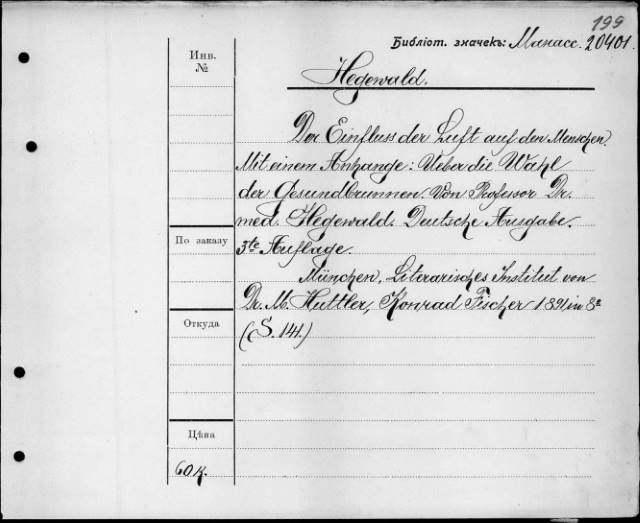 199
Библіот. значекъ: Манасс. 20401.
Инв.
№
Hegewald.
Der Einfluss der Luft auf den Menschen.
Mit einem Anhange: Ueber die Wahl
der Gesundbrunnen. Von Professor Dr.
med. Hegewald. Deutsche Ausgabe.
По заказу
3te Auflage.
München, Literarisches Institut von
Dr. M. Huttler, Konrad Fischer 1891, in 8°
Откуда
(S. 141.)
Цѣна
60 к.